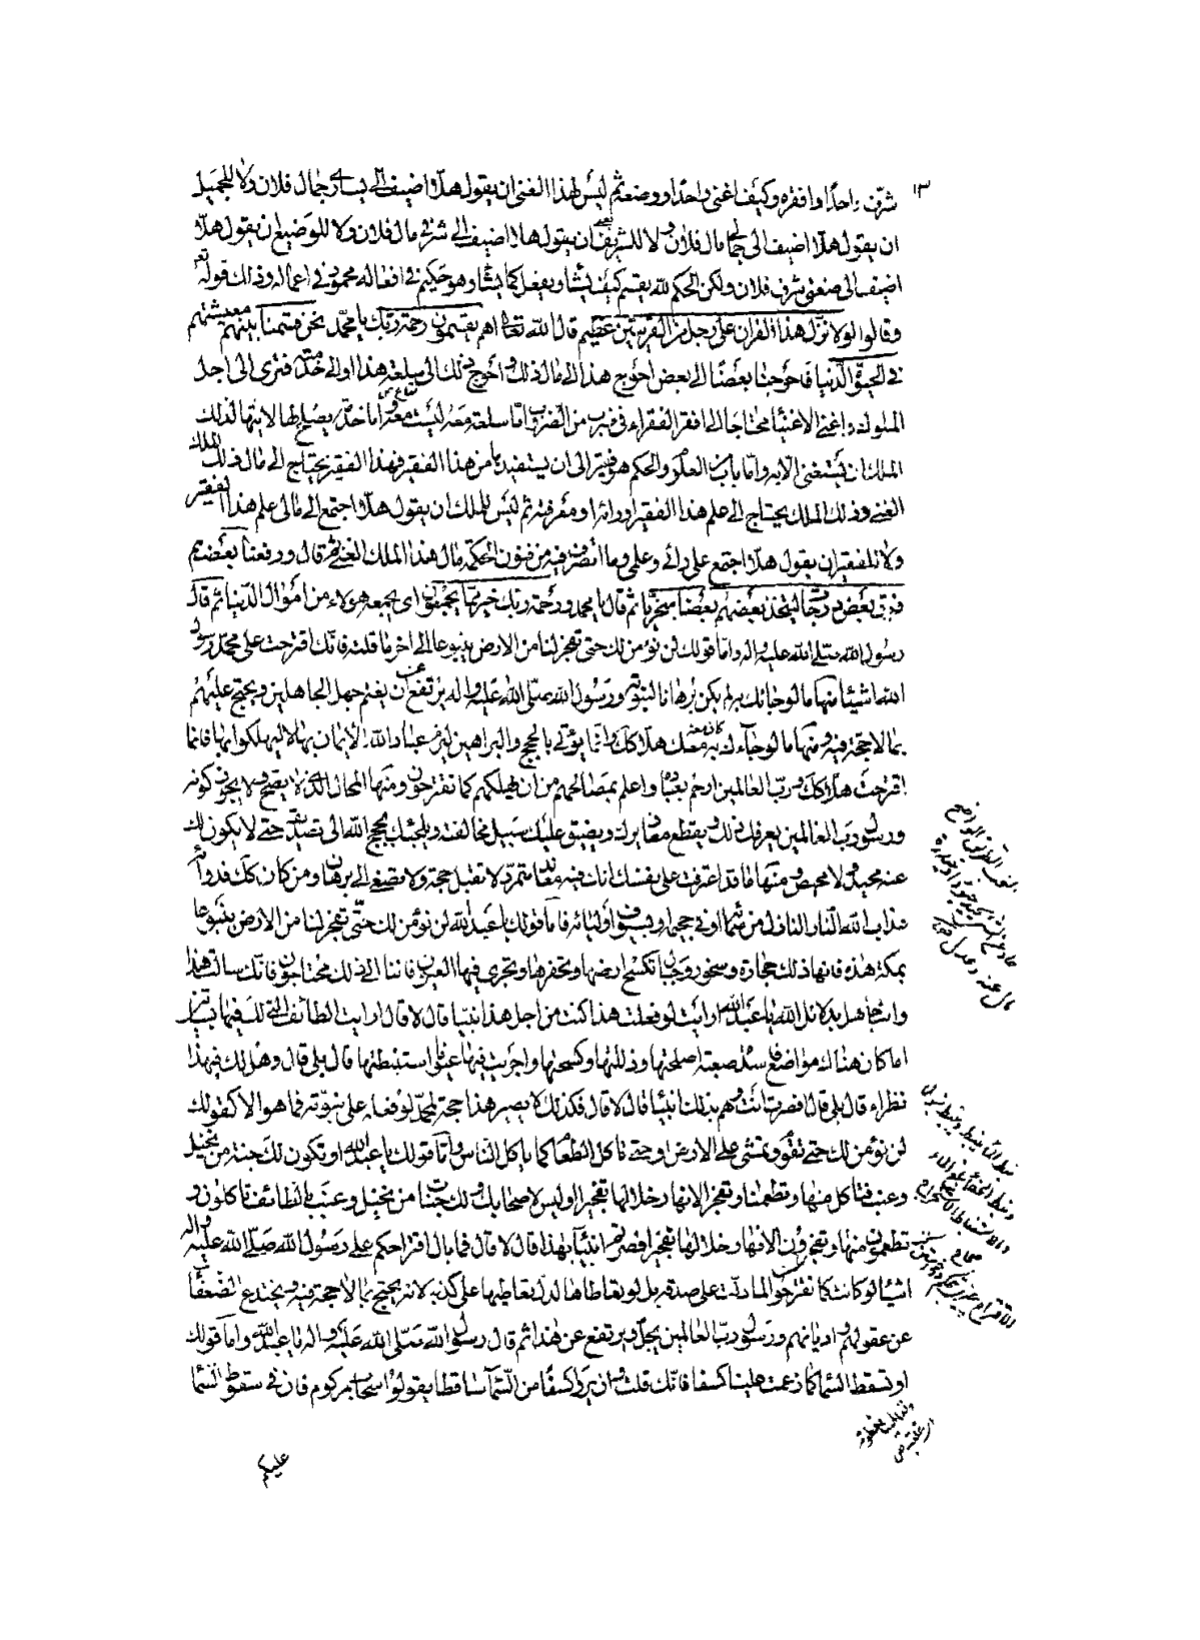 ١٣
شرّف واحدًا وافقره وكيف اغنى واحدًا ووضعه ثم ليس لهذا الغنى ان يقول هلّا اضيف الى يسارى جمال فلان ولا للجميل
ان يقول هلّا اضيف الى جمالى مال فلان ولا للشريف ان يقول هلّا اضيف الى شرفى مال فلان ولا للوضيع ان يقول هلّا
اضيف الى ضعتى شرف فلان ولكن الحكم لله يقسم كيف يشاء ويفعل كما يشاء وهو حكيم فى افعاله محمود فى اعماله وذلك قوله تعالى
وقالوا لولا نزّل هذا القران على رجل من القريتين عظيم قال الله تعالى اهم يقسمون رحمة ربّك يا محمّد نحن قسمنا بينهم معيشتهم
فى الحيوة الدّنيا فاحوجنا بعضًا الى بعض احوج هذا الى مال ذلك واحوج ذلك الى سلعة هذا او الى خدمته فترى اجل
الملوك واغنى الاغنياء محتاجا الى افقر الفقراء فى ضرب من الضروب امّا سلعة معه ليست معه وامّا خدمة يصلح لها لا يتهيّا لذلك
الملك ان يستغنى الّا به وامّا باب من العلوم والحكم هو فقير الى ان يستفيدها من هذا الفقير فهذا الفقير يحتاج الى مال ذلك الملك
الغنى وذلك الملك يحتاج الى علم هذا الفقير او رائه او معرفته ثم ليس للملك ان يقول هلّا اجتمع الى مالى علم هذا الفقير
ولا للفقير ان يقول هلّا اجتمع على رائى وعلمى وما اتصرف فيه من فنون الحكمة مال هذا الملك الغنى ثم قال ورفعنا بعضهم
فوق بعض درجات ليتخذ بعضهم بعضا سخريا ثم قال يا محمد ورحمة ربك خير مما يجمعون اى يجمعه هؤلاء من اموال الدّنيا ثم قال
رسول الله صلى الله عليه واله وامّا قولك لن نؤمن لك حتى تفجر لنا من الارض ينبوعا الى اخر ما قلته فانّك اقترحت على محمد رسول
الله اشياء منها ما لو جاءك به لم يكن برهانا لنبوته ورسول الله صلّى الله عليه واله يرتفع عن ان يغتنم جهل الجاهلين ويحتج عليهم
بما لا حجة فيه ومنها ما لو جاءك به كان معه هلاكك وانّما يؤتى بالحجج والبراهين ليلزم عباد الله الايمان بها لا ليهلكوا بها فانما
اقترحت هلاكك وربّ العالمين ارحم بعباده واعلم بمصالحهم من ان يهلكهم كما تقترحون ومنها المحال الذى لا يصحّ ولا يجوز كونه
ورسول ربّ العالمين يعرفك ذلك ويقطع معاذيرك ويضيق عليك سبيل مخالفته ويلجئك بحجج الله الى تصديقه حتى لا يكون لك
عنه محيد ولا محيص ومنها ما قد اعترفت على نفسك انك فيه معاند متمرّد لا تقبل حجة ولا تصغى الى برهان ومن كان كذلك فدواؤه
عذاب الله النار النازل من سمائه او فى جحيمه او بسيوف اوليائه فامّا قولك يا عبد الله لن نؤمن لك حتّى تفجر لنا من الارض ينبوعا
بمكة هذه فانها ذات حجارة وصخور وجبال تكسح ارضها وتحفرها وتجرى فيها العيون فاننا الى ذلك محتاجون فانّك سالت هذا
وانت جاهل بدلائل الله يا عبد الله ارايت لو فعلت هذا كنت من اجل هذا نبيا قال لا قال ارايت الطائف التى لك فيها بساتين
اما كان هناك مواضع فاسدة صعبة اصلحتها وذللتها وكسحتها واجريت فيها عيونا استنبطتها قال بلى قال وهل لك فيها
نظراء قال بلى قال فصرت انت وهم بذلك انبياء قال لا قال فكذلك لا يصير هذا حجة لمحمّد لو فعله على نبوّته فما هو الا كقولك
لن نؤمن لك حتى تقوم وتمشى على الارض او حتى تاكل الطعام كما ياكل الناس وامّا قولك يا عبد الله او تكون لك جنة من نخيل
وعنب فتاكل منها وتطعمنا وتفجر الانهار خلالها تفجيرا اوليس لاصحابك ولك جنّات من نخيل وعنب بالطائف تاكلون و
تطعمون منها وتفجرون الانهار خلالها تفجيرا افصرتم انبياء بهذا قال لا قال فما بال اقتراحكم على رسول الله صلّى الله عليه واله
اشياء لو كانت كما تقترحون لما دلّت على صدقه بل لو تعاطاها لدلّ تعاطيها على كذبه لانه يحتج بما لا حجة فيه ويختدع الضعفاء
عن عقولهم واديانهم ورسول ربّ العالمين يجلّ ويرتفع عن هذا ثم قال رسول الله صلّى الله عليه واله يا عبد الله وامّا قولك
او تسقط السّماء كما زعمت علينا كسفا فانّك قلت وان يروا كسفًا من السّماء ساقطا يقولوا سحاب مركوم فان فى سقوط السّماء
عليكم